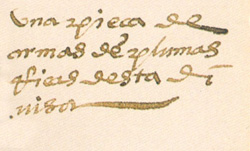 una pieça de
armas de plumas
ricas desta di
uisa